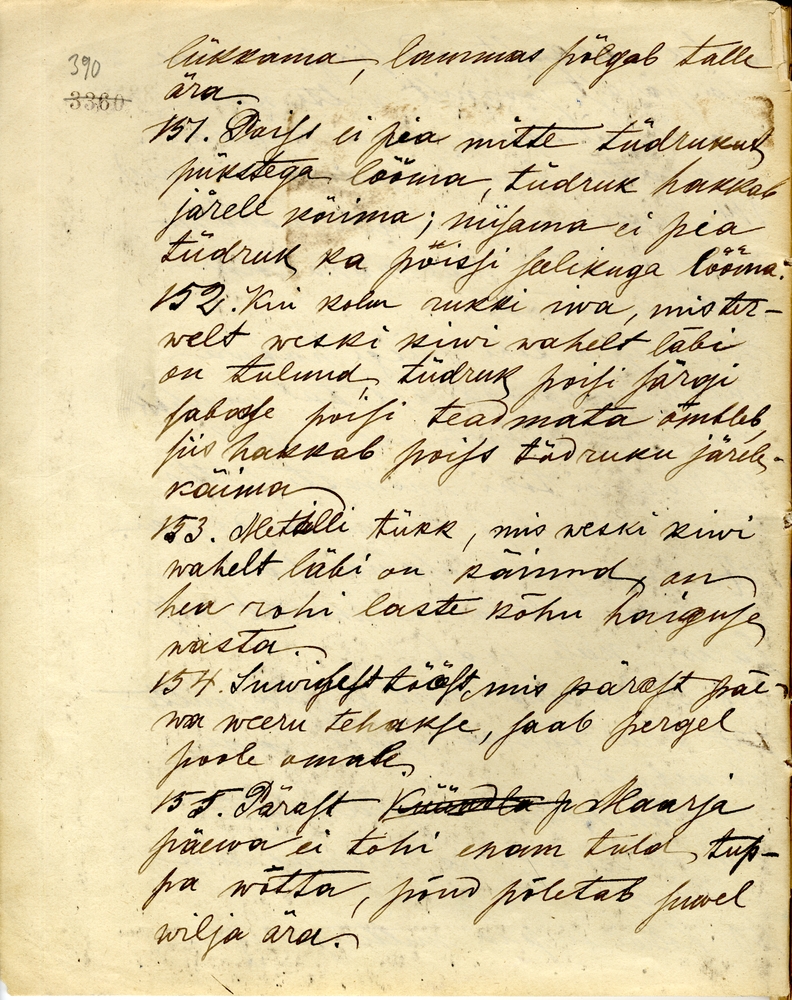 390
3360
lükkama, lammas põlgab talle
ära.
151. Poiss ei pea mitte tüdrukut
pükstega lööma, tüdruk hakkab
järele käima; niisama ei pea
tüdruk ka poissi seelikuga lööma.
152. Kui kolm rukki iwa, mis ter-
welt weski kiwi wahelt läbi
on tulnud, tüdruk poisi särgi
sabasse poisi teadmata õmbleb,
siis hakkab poiss tüdruku järele
käima
153. Metalli tükk, mis weski kiwi
wahelt läbi on käinud, on
hea rohi laste kõhu haiguse
wasta.
154. Suwisest tööst, mis pärast päe-
wa weeru tehakse, saab pergel
poole omale.
155. Pärast Küündla p Maarja
päewa ei tohi enam tuld tup-
pa wõtta, põud põletab suwel
wilja ära.